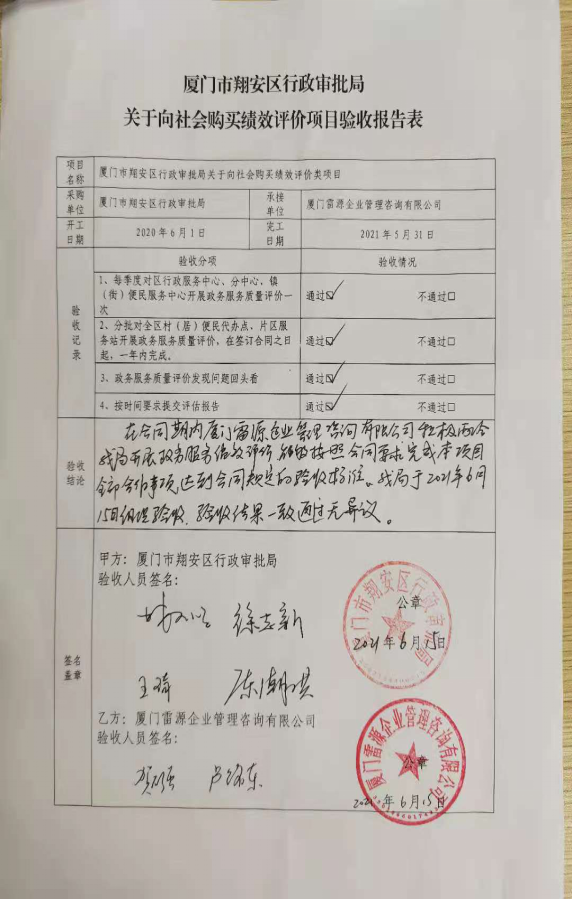 厦门市翔安区行政审批局
关于向社会购买绩效评价项目验收报告表
项目名称
厦门市翔安区行政审批局关于向社会购买绩效评价类项目
采购单位
厦门市翔安区行政审批局
承接单位
厦门雷源企业管理咨询有限公司
开工日期
2020年6月1日
完工日期
2021年5月31日
验收记录
验收分项
验收情况
1、每季度对区行政服务中心、分中心、镇
（街）便民服务中心开展政务服务质量评价一
次
通过☑ 不通过□
2、分批对全区村（居）便民代办点，片区服
务站开展政务服务质量评价，在签订合同之日
起，一年内完成。
通过☑ 不通过□
3、政务服务质量评价发现问题回头看
通过☑ 不通过□
4、按时间要求提交评估报告
通过☑ 不通过□
验收结论
在合同期内厦门雷源企业管理咨询有限公司积极配合
我局开展政务服务绩效评价，能够按照合同要求完成本项目
全部合作事项，达到合同规定的验收标准。我局于2021年6月
15日组织验收，验收结果一致通过无异议。
签名盖章
甲方：厦门市翔安区行政审批局
验收人员签名：
徐志新
王琦
公章
2021年6月15日
厦门市翔安区行政审批局
乙方：厦门雷源企业管理咨询有限公司
验收人员签名：
公章
2021年6月15日
厦门雷源企业管理咨询有限公司